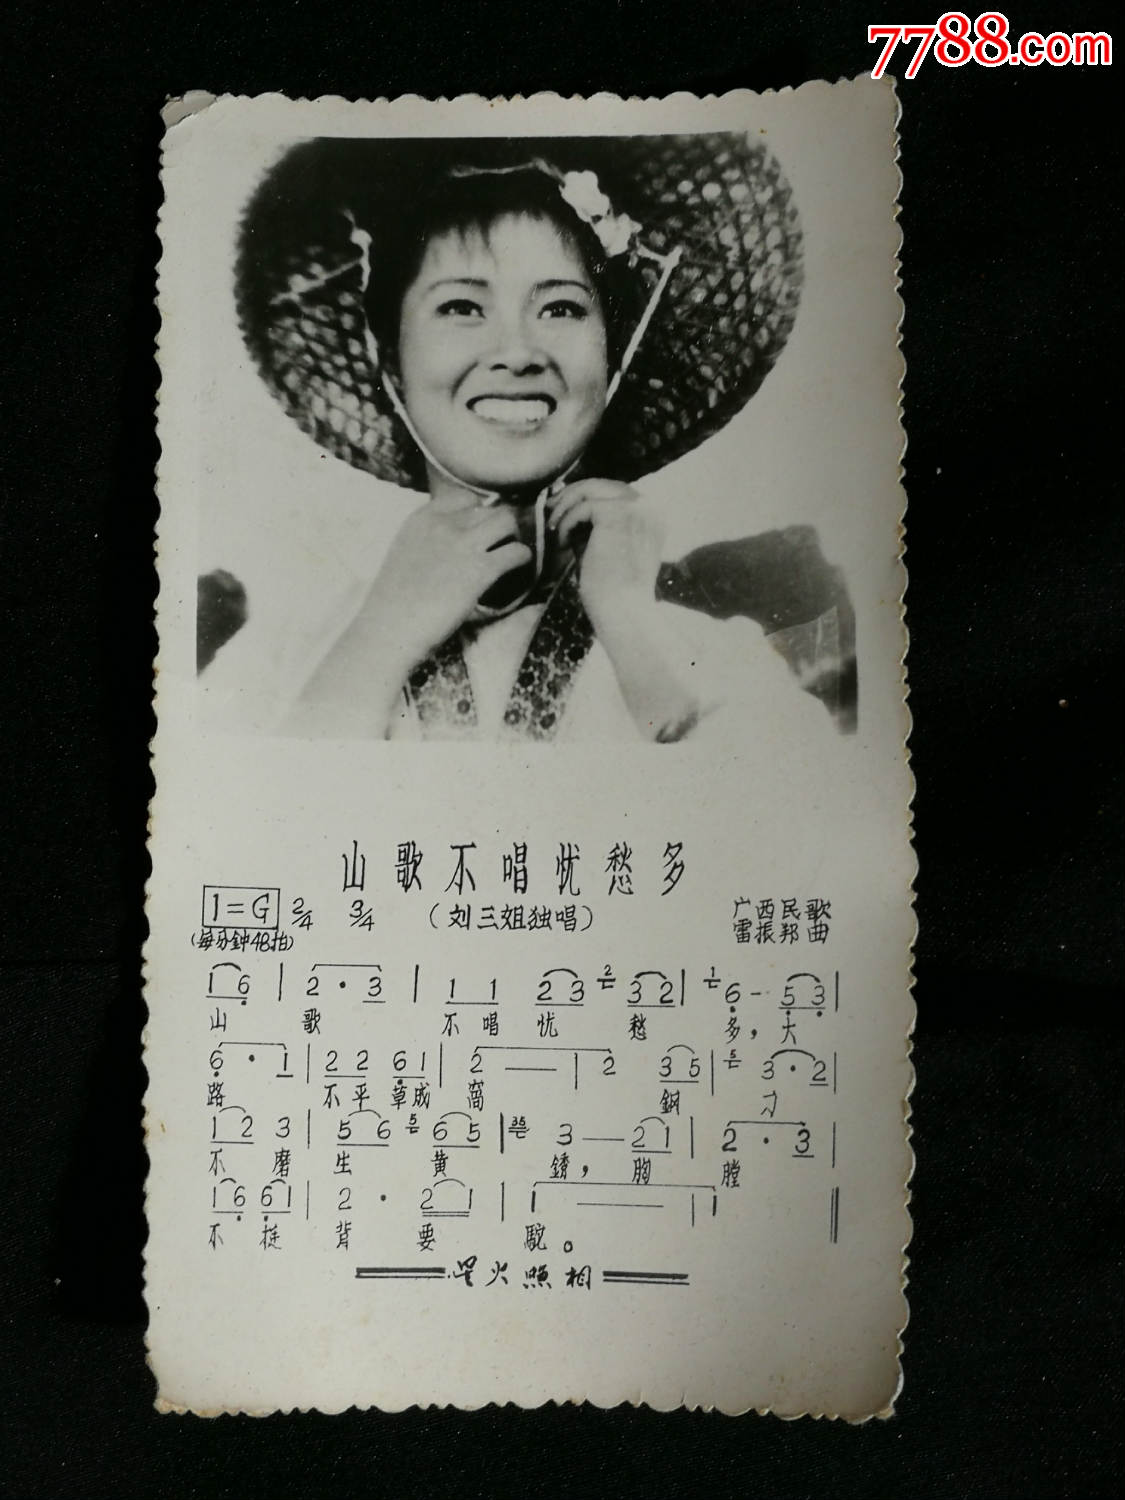 7788.com
山歌不唱忧愁多
1=G 2/4 3/4 (刘三姐独唱) 广西民歌
(每分钟48拍) 雷振邦曲
1 6 | 2 · 3 | 1 1 2 3 2 3 2 | 1 6 - 5 3 |
山 歌 不 唱 忧 愁 多，大
6 · 1 | 2 2 6 1 | 2 — | 2 3 5 | 5 3 · 2 |
路 不 平 草 成 窩 鋼 刀
1 2 3 | 5 6 5 6 5 | 35 3 — 2 1 | 2 · 3 |
不 磨 生 黄 銹，胸 膛
1 6 6 1 | 2 · 2 1 | 1 — | 1 ‖
不 挺 背 要 駝。
星火照相